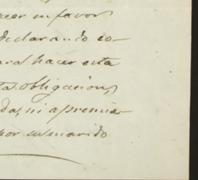 acer en favor
declarando co-
para hacer esta
ta obligacion,
das, ni apremia
por su marido